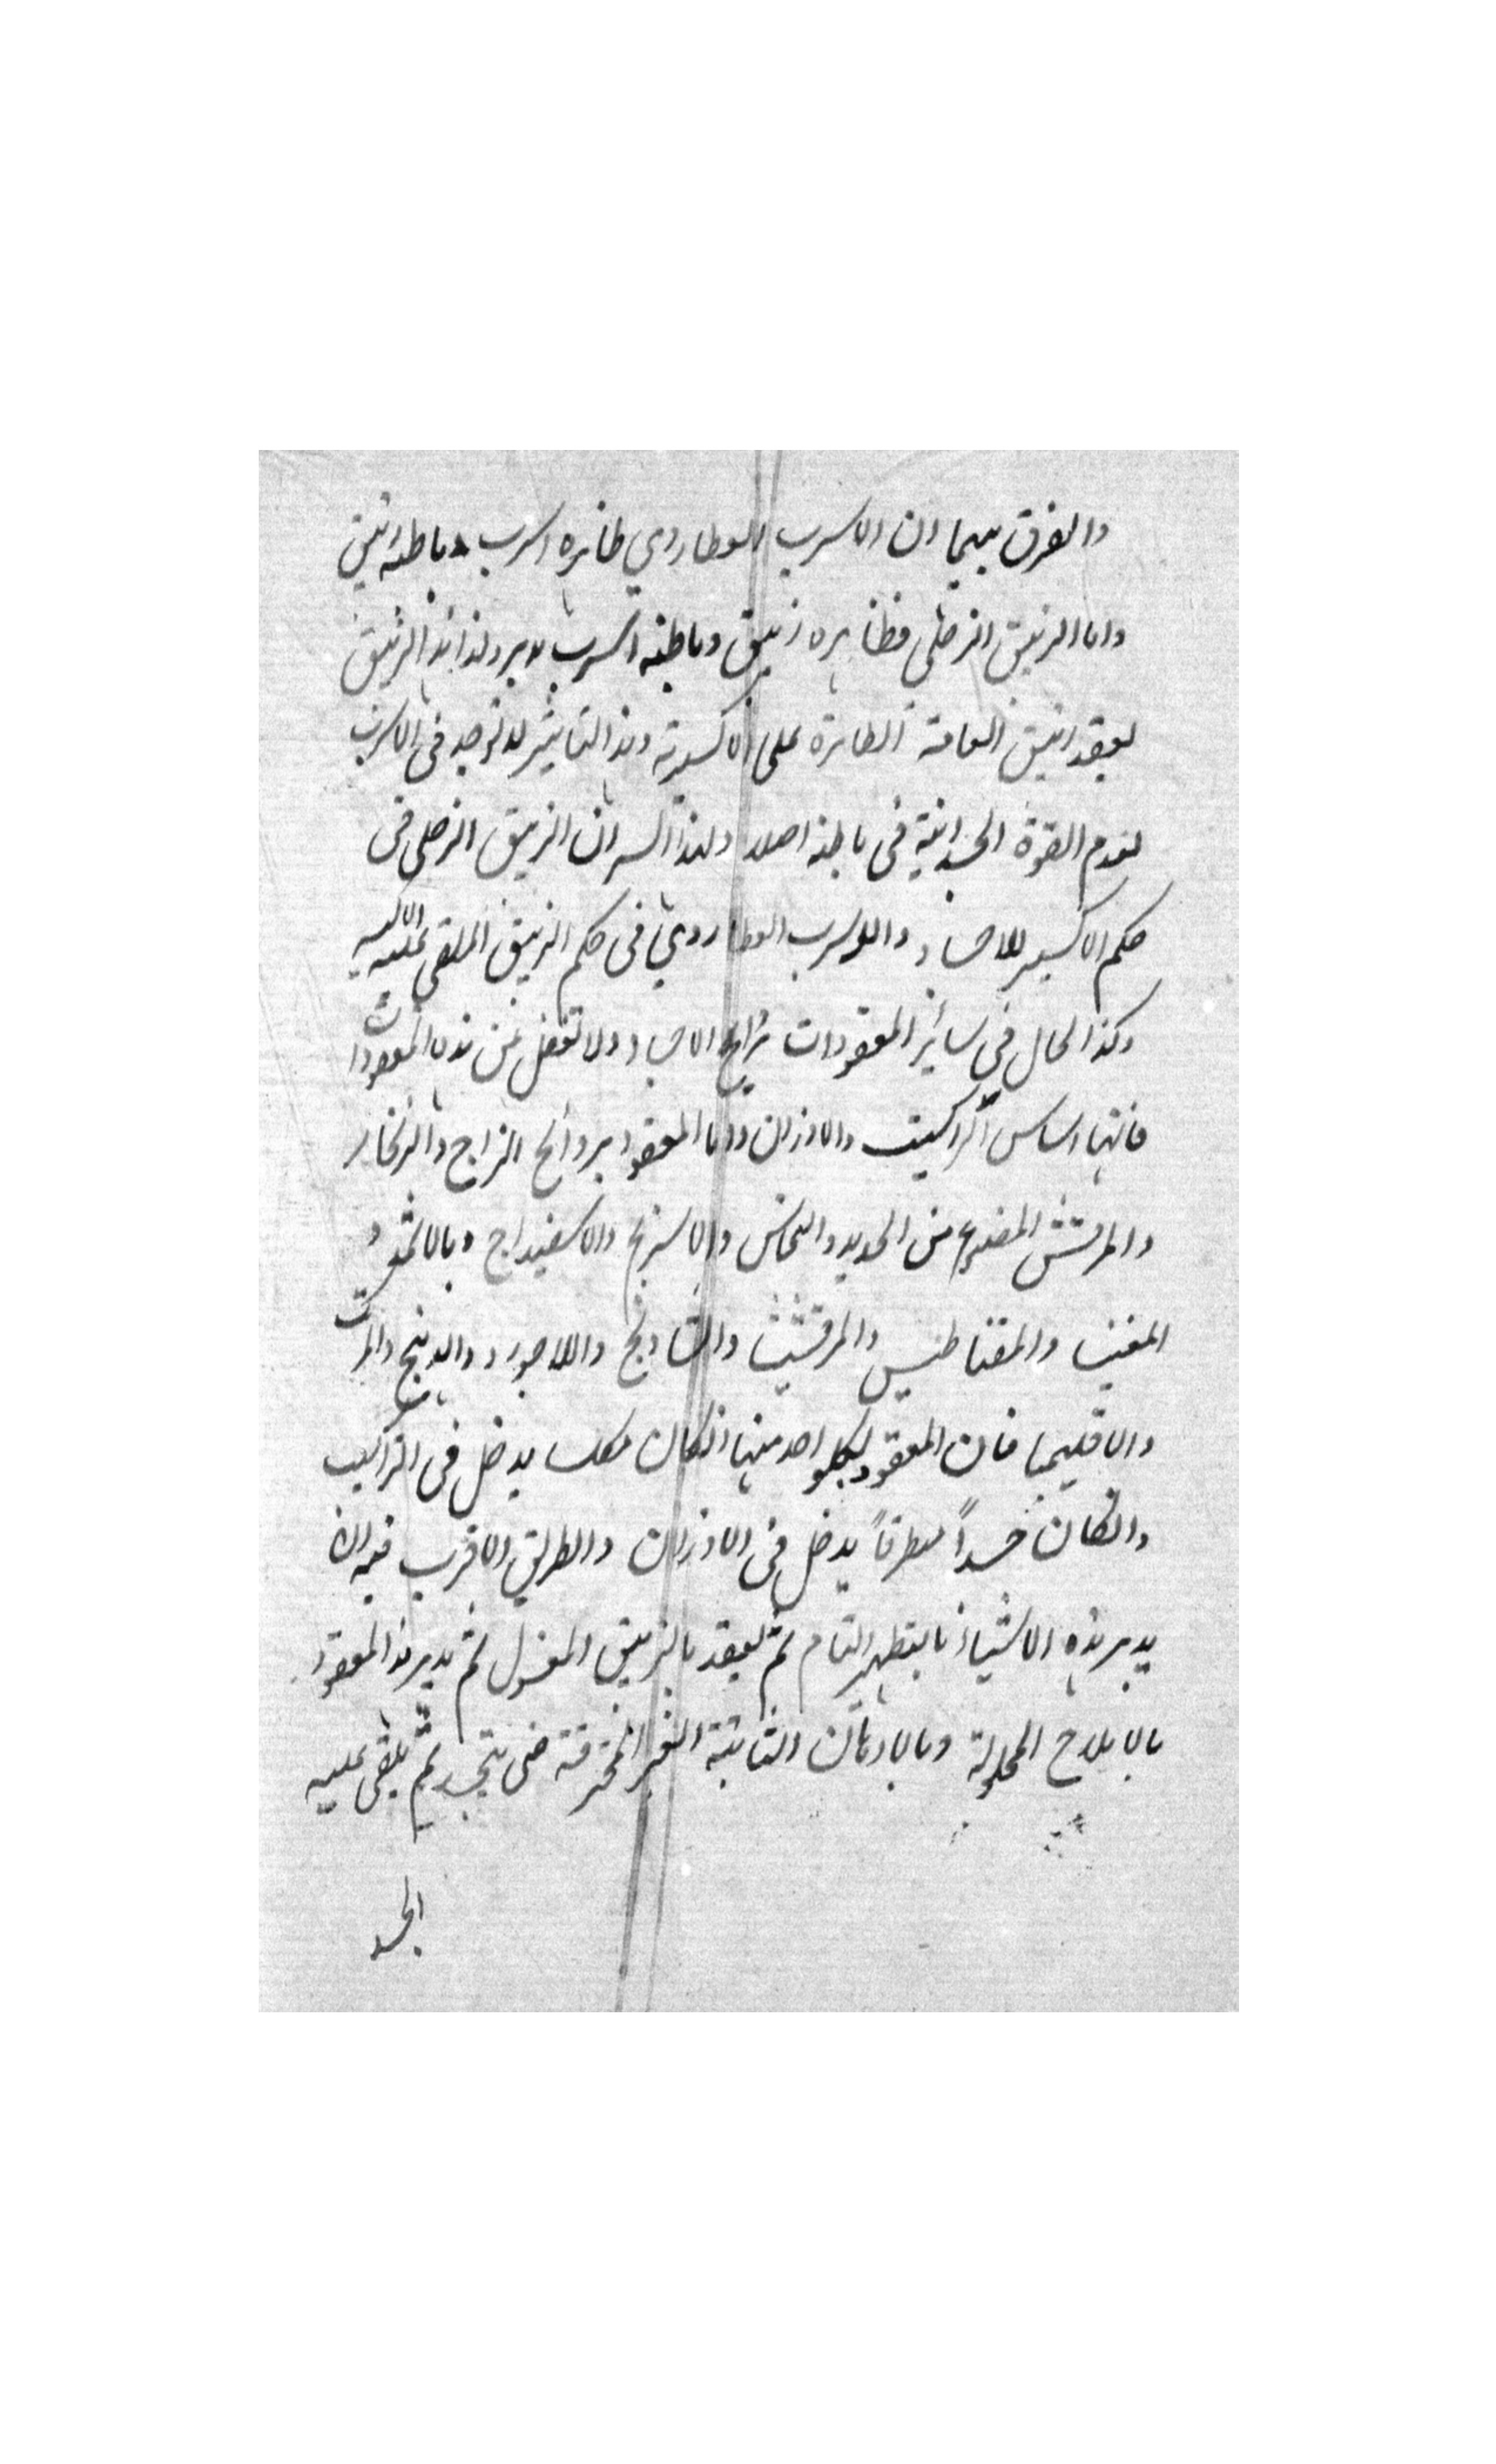 والفرق بينهما ان الاسرب العطاردي ظاهره اسرب وباطنه زئبق
واما الزئبق الزحلي فظاهره زئبق وباطنه اسرب مدبر ولذا هذا الزئبق
يعقد زئبق العامة الطائرة على الاكسيرية وهذا التاثير لا توجد في الاسرب
لعدم القوة الجسدانية في باطنه اصلا ولهذا السر ان الزئبق الزحلي في
حكم الاكسير للاجساد والاسرب العطاردي في حكم الزئبق الملقى عليه الاكسير
وكذا الحال في سائر المعقودات بروايح الاجساد ولا تغفل عن هذه المعقودات
فانها اساس التراكيب والاوزان واما المعقود بروائح الزاج والزنجار
والمرقشش المصنوع من الحديد والنحاس والاسرنج والاسفيداج وبالاثمد و
المغنيسا والمقناطيس والمرقشيثا والشادنج واللاجورد والدهنج والمرتك
والاقليميا فان المعقود بكل واحد منها ان كان مكلسا يدخل في التراكيب
وان كان جسداً منطرقاً يدخل في الاوزان والطريق الاقرب فيه ان
يدبر هذه الاشياء بالتطهير التام ثم يعقد بالزئبق المغسول ثم يدبر هذا المعقود
بالاملاح المحلولة وبالادهان الثابتة الغير المحترقة حتى يتجسد ثم يلقى عليه
الجسد